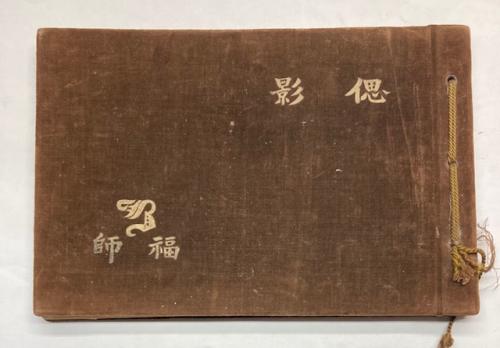 偲影
福師